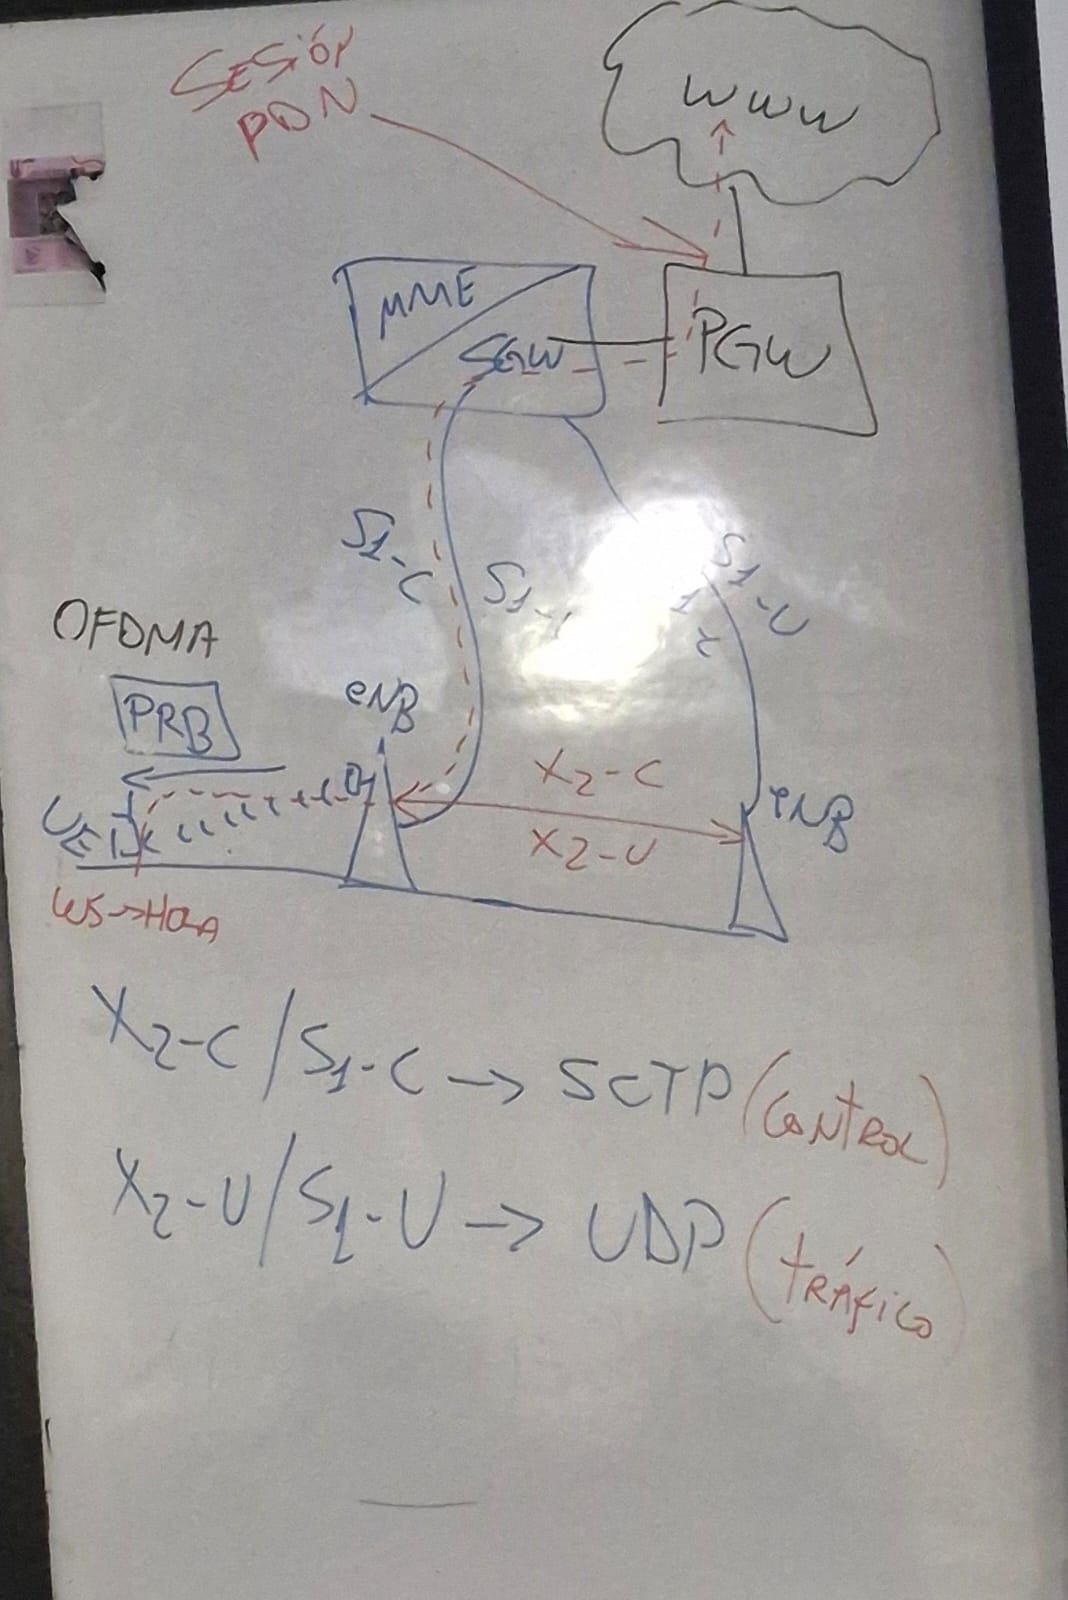 SESIÓN
PDN
WWW
MME
SGW
PGW
S1-C
S1-U
OFDMA
PRB
eNB
X2-C
X2-U
eNB
UE
WS->HOLA
X2-C/S1-C -> SCTP (CONTROL)
X2-U/S1-U -> UDP (TRÁFICO)